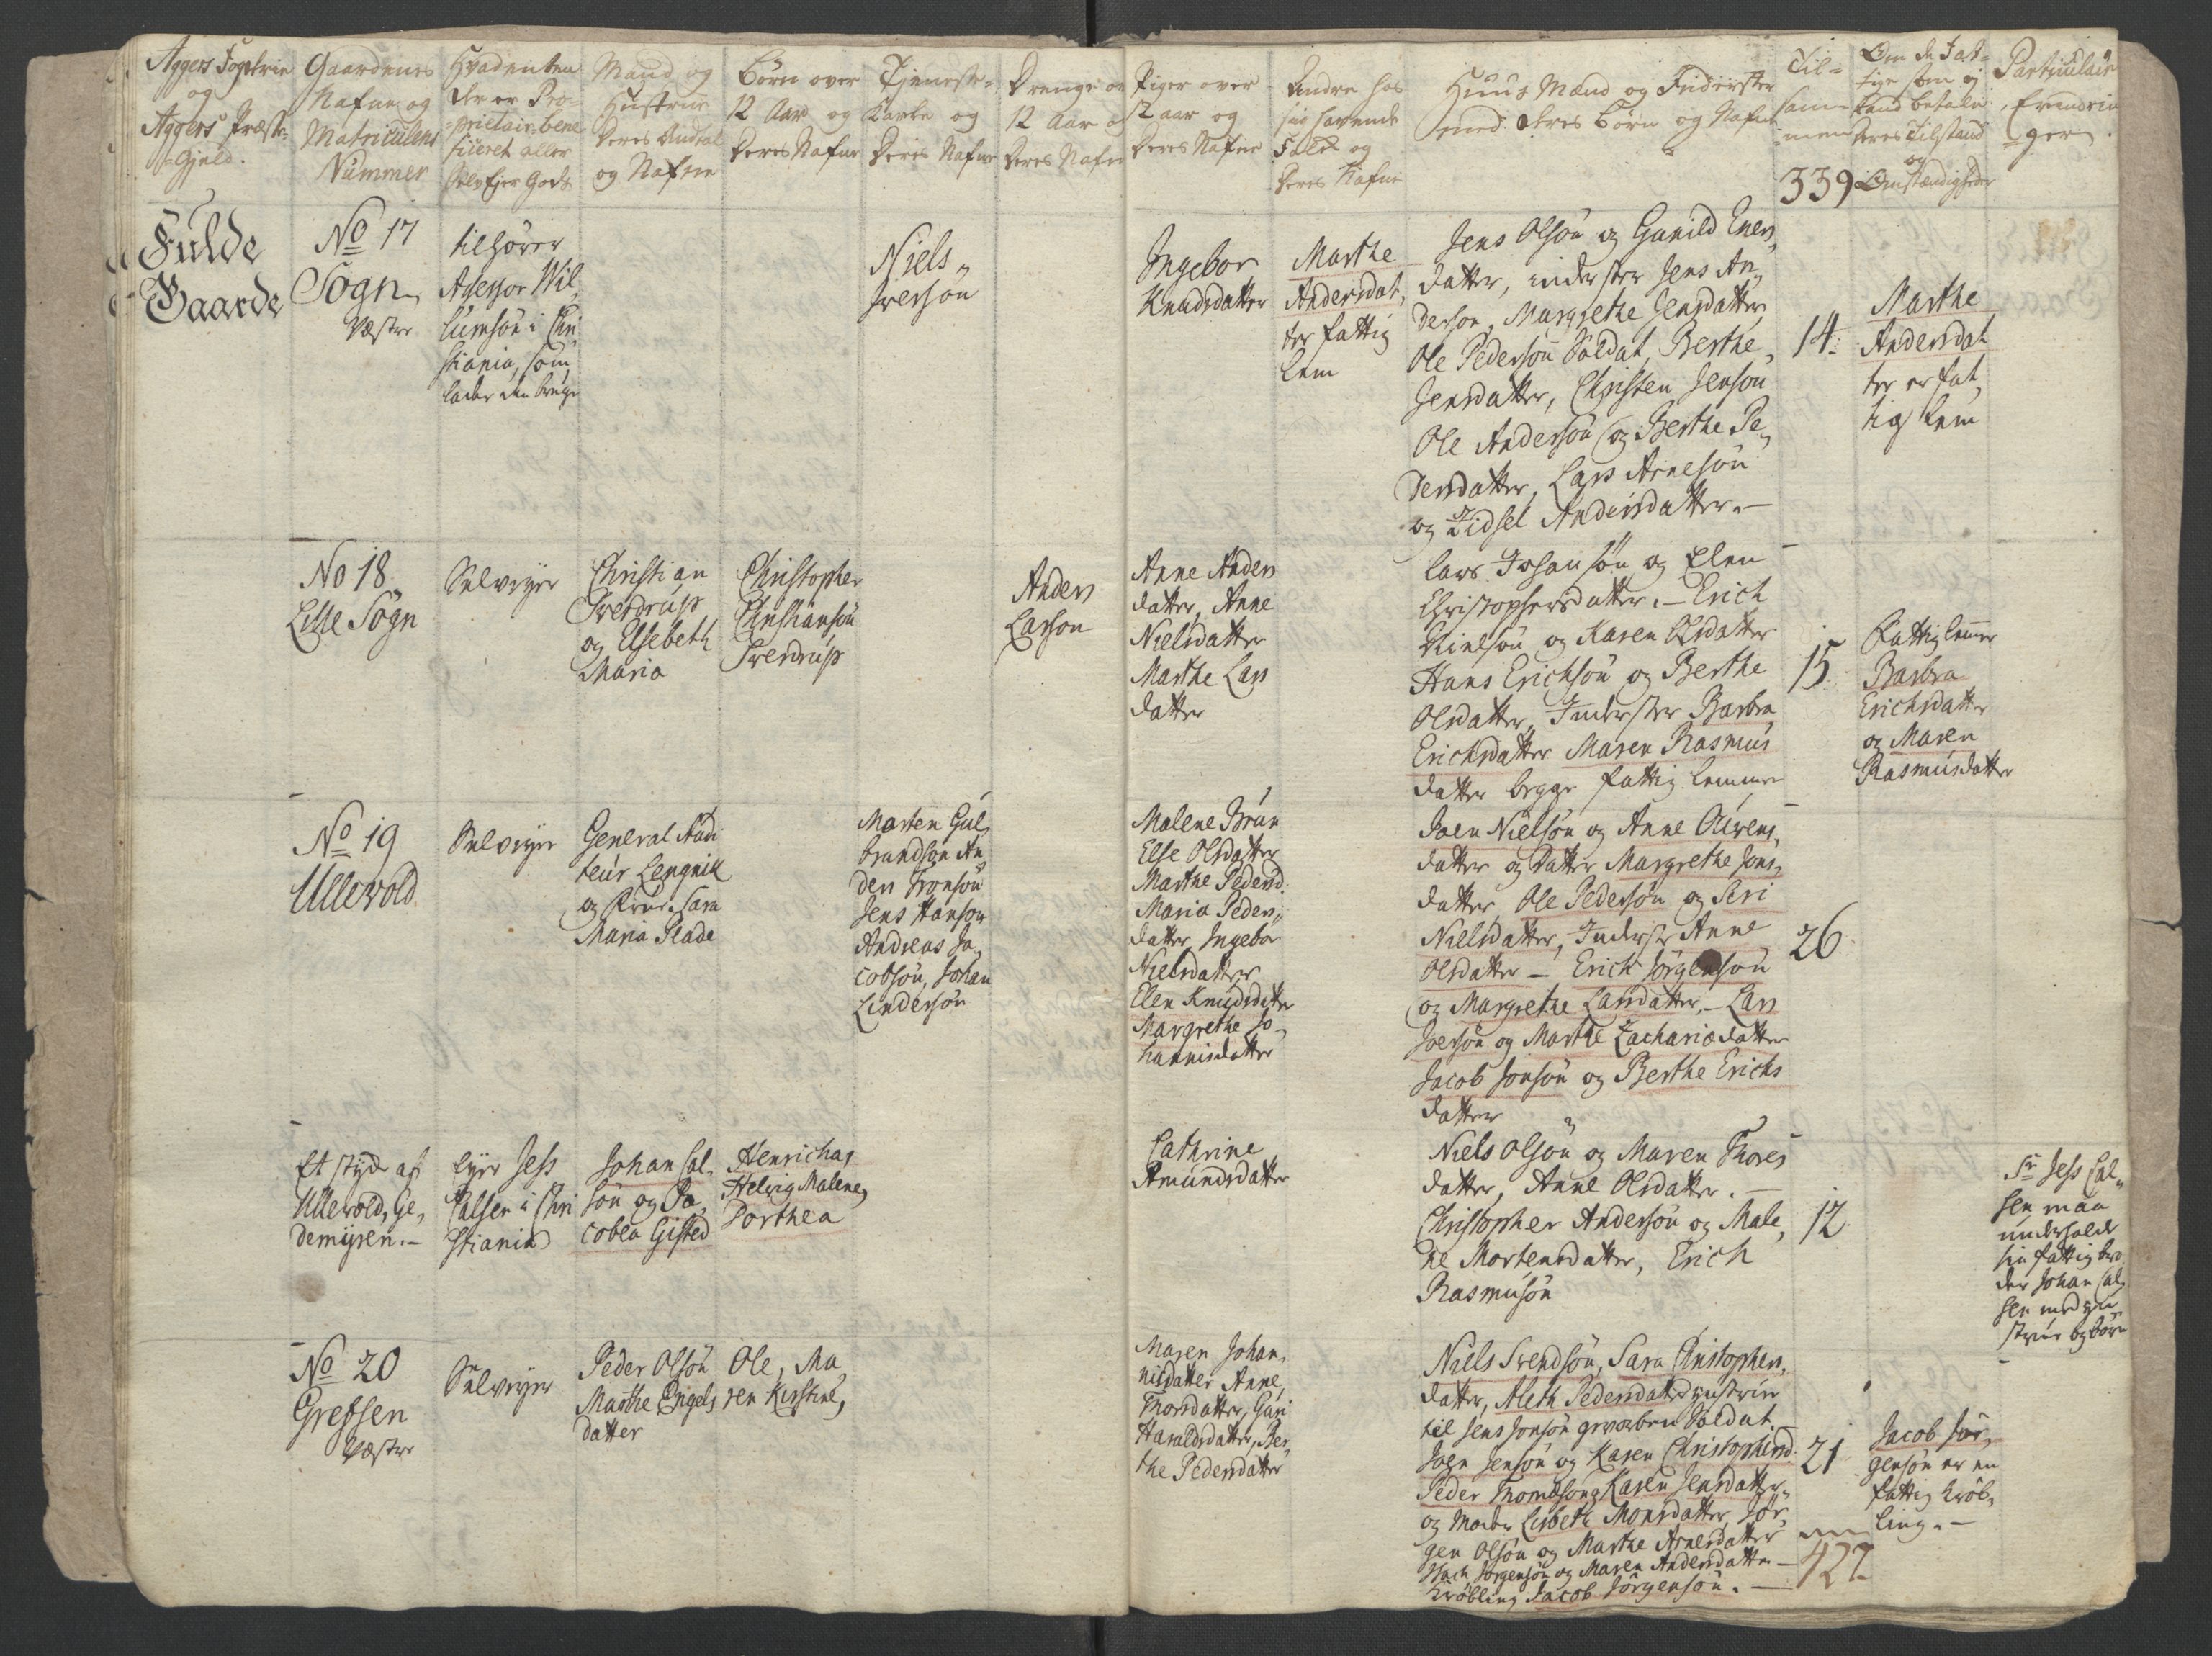 Aggers Fogderie
og
Aggers Præste-
Gjeld.
Gaardenes
Nafne og
Matriculens
Nummer
Hvadenten
der er Pro-
prietair, bene
ficeret eller
Selvejer Gods
Mand og
Hustrue
deres Andtal
og Nafne
Børn over
12 Aar og
Deres Nafne
Tjeneste-
Karle og
Deres Nafne
Drenge ov
12 Aar og
Deres Nafne
Piger over
12 aar og
Deres Nafne
Andre hos
sig havende
Folk og
Deres Nafne
Huus Mænd og Inderster
med deres Børn og Nafne
Til-
sam
men
339
Om de Fat-
tige som ej
kand betale
deres Tilstand
og
Omstændigheder
Particulair
Erindrin
ger
Fulde
Gaarde
No 17
Sogn
Væstre
tilhører
Assessor Wil,
lumsøn i Chri
stiania, som
lader den bruge
Niels
Iversøn
Ingebor
Knudsdatter
Marthe
Andersdat,
ter fattig
Lem
Jens Olsøn og Gunild Evers,
datter, inderster Jens An,
dersøn, Margrethe Jensdatter
Ole Pedersøn Soldat, Berthe
Jensdatter, Christen Jensøn
Ole Andersøn og Berthe Pe,
dersdatter, Lars Arnesøn
og Zidsel Andersdatter. —
14.
Marthe
Andersdat
ter er fat,
tig Lem
No 18.
Lille Sogn
Selvejer
Christian
Sverdrup
og Elsebeth
Maria
Christopher
Christiansøn
Sverdrup
Anders
Larson
Anne Anders
datter, Anne
Nielsdatter
Marthe Lars
datter
Lars Johansøn og Elen
Christophersdatter. — Erich
Nielsøn og Karen Olsdatter
Hans Erichsøn og Berthe
Olsdatter, Inderster Barbra
Erichsdatter Maren Rasmus
datter begge fattig Lemmer
15
Fattig Lemmer
Barbra
Erichsdatter
og Maren
Rasmusdatter
No 19
Ullevold
Selvejer
General Audi
teur Lengnik
og Frue Sara
Maria Plade
Morten Gul,
brandsøn An
ders Tronsøn
Jens Hansøn
Andreas Ja,
cobsøn, Johan
Lindersøn
Malene Brun
Else Olsdatter
Marthe Pedersd.
Maria Peders,
datter, Ingebor
Nielsdatter
Elen Knudsdatter
Margrethe Jo,
hannisdatter
Joen Nielsøn og Anne Ouwens,
datter og Datter Margrethe Jons,
datter, Ole Pedersøn og Siri
Nielsdatter, Inderste Anne
Olsdatter — Erich Jørgensøn
og Margrethe Larsdatter, — Lars
Joersøn og Marthe Zachariædatter
Jacob Jonsøn og Berthe Erichs
datter
26
Et styk af
Ullevold, Ge,
demyren. —
Ejer Jess
Calsen i Chri
stiania
Johan Cal,
søn og Ja,
cobea Gisted
Henricha,
Helvig Malene,
Dorthea
Cathrine
Amundsdatter
Niels Olsøn og Maren Thores
datter, Anne Olsdatter. —
Christopher Andersøn og Male,
ne Mortensdatter, Erich
Rasmusøn
12
Sr Jess Cal,
sen maa
underholde
sin fattig bro
der Johan Cal,
sen med Hu
strue og børn
No 20
Grefsen
Væstre
Selvejer
Peder Olsøn
Marthe Engels,
datter
Ole, Ma,
ren Kirstine,
Maren Johan,
nisdatter Anne
Thorsdatter, Guri
Haraldsdatter, Ber,
the Pedersdatter
Niels Svendsøn, Sara Christophers,
datter, Aleth Pedersdatter Hustrue
til Jens Jonsøn gevorben Soldat
Joen Jensøn og Karen Christophersd.
Peder Thomæsøn og Karen Jensdatter,
og Moder Lisbeth Monsdatter, Jør,
gen Olsøn og Marthe Arnesdatter
Isach Jørgensøn og Maren Andersdatter —
Krøbling Jacob Jørgensøn. —
21
427
Jacob Jør,
gensøn er en
fattig Krøb,
ling. —